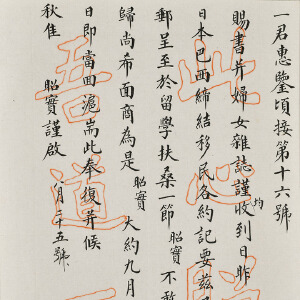 一君惠鑒頃接第十六號
賜書并婦女雜誌謹均收到日昨
日本巴西締結移民各約記要茲
郵呈至於留學扶桑一節昭實不敢
歸尚希面商為是昭實大約九月
日即當回滬耑此奉復并候
秋佳 昭實謹啟 八月二十五號